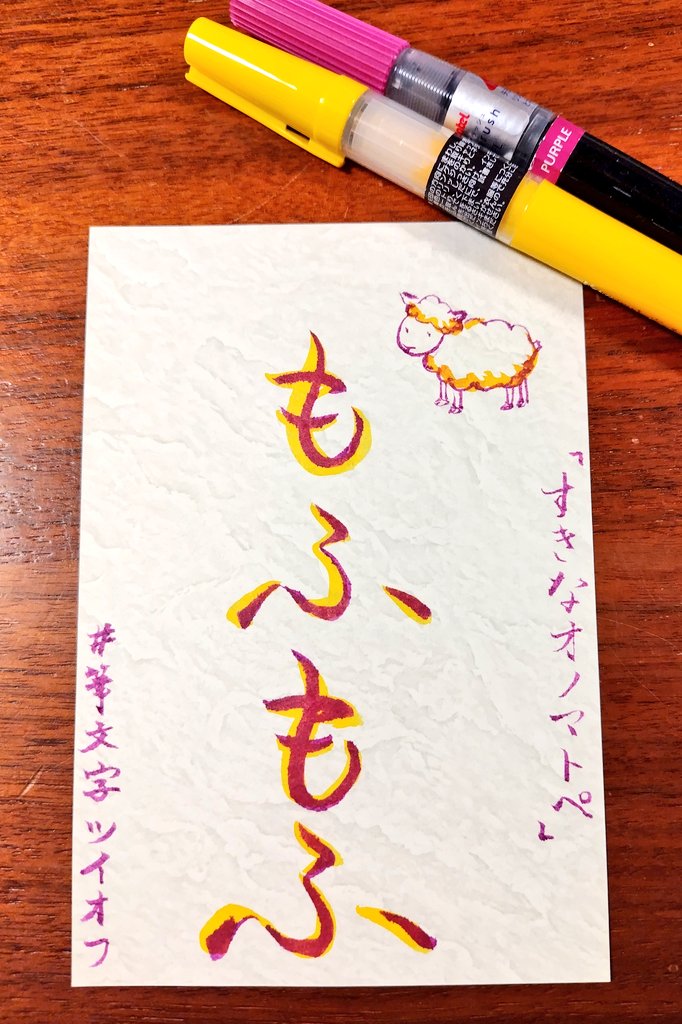 「すきなオノマトペ」
もふもふ
#筆文字ツイオフ
PURPLE